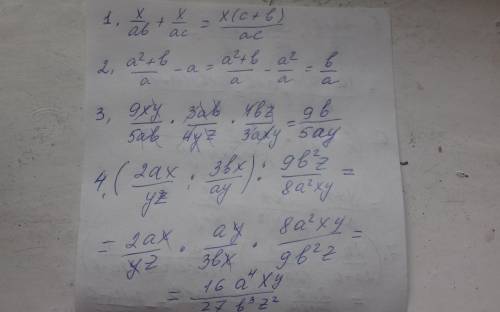 1. x/ab + x/ac = x(c+b)/ac
2. a²+b/a - a = a²+b/a - a²/a = b/a
3. 9xy/5ab · 3ab/4yz · 4bz/3axy = 9b/5ay
4. (2ax/yz : 3bx/ay) : 9b²z/8a²xy =
= 2ax/yz · ay/3bx · 8a²xy/9b²z =
= 16a⁴xy/27b³z²